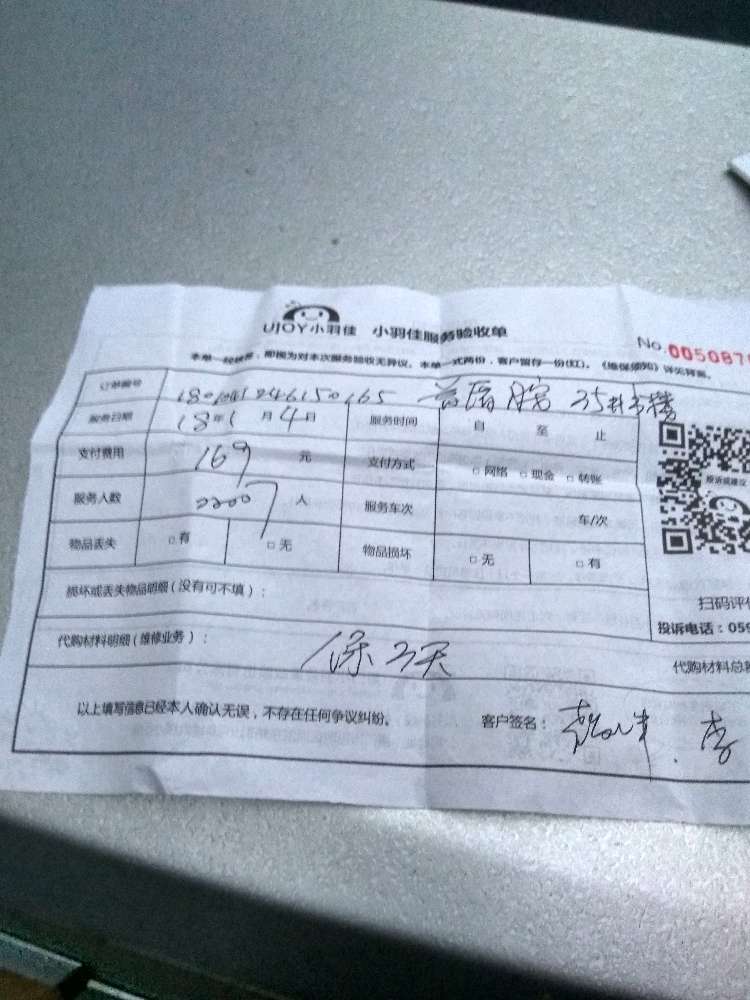 UJOY小羽佳 小羽佳服务验收单
No.005087
本单一经签署,即视为对本次服务验收无异议。本单一式两份,客户留存一份(红)。《维保须知》详见背面。
订单编号
服务日期 18年1月4日 服务时间 自 至 止
支付费用 169 元 支付方式 □网络 □现金 □转账
服务人数 人 服务车次 车/次
物品丢失 □有 □无 物品损坏 □无 □有
损坏或丢失物品明细(没有可不填):
扫码评
投诉电话:059
代购材料明细(维修业务): 保3天 代购材料总
以上填写信息已经本人确认无误,不存在任何争议纠纷。 客户签名: